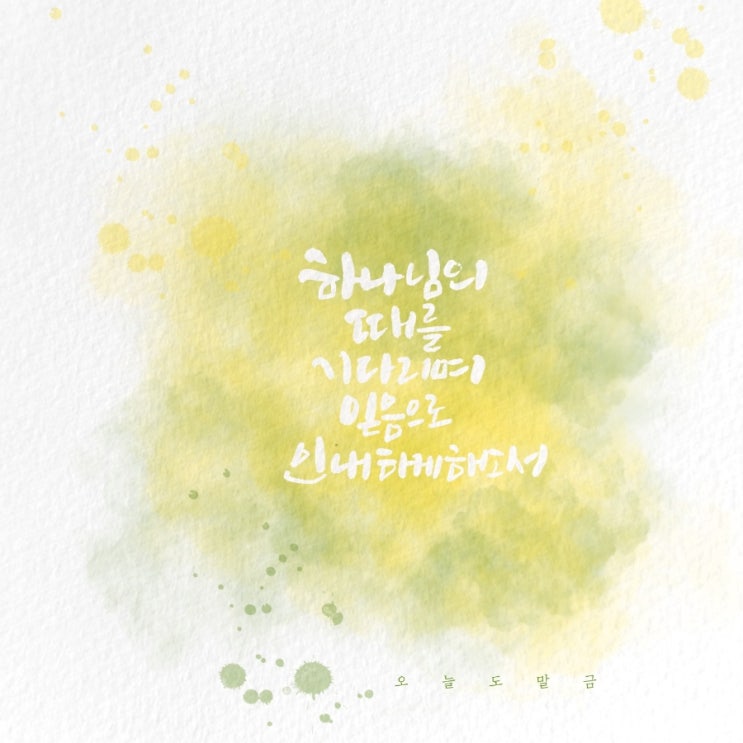 하나님의
때를
기다리며
믿음으로
인내하게 하소서
오늘도말금